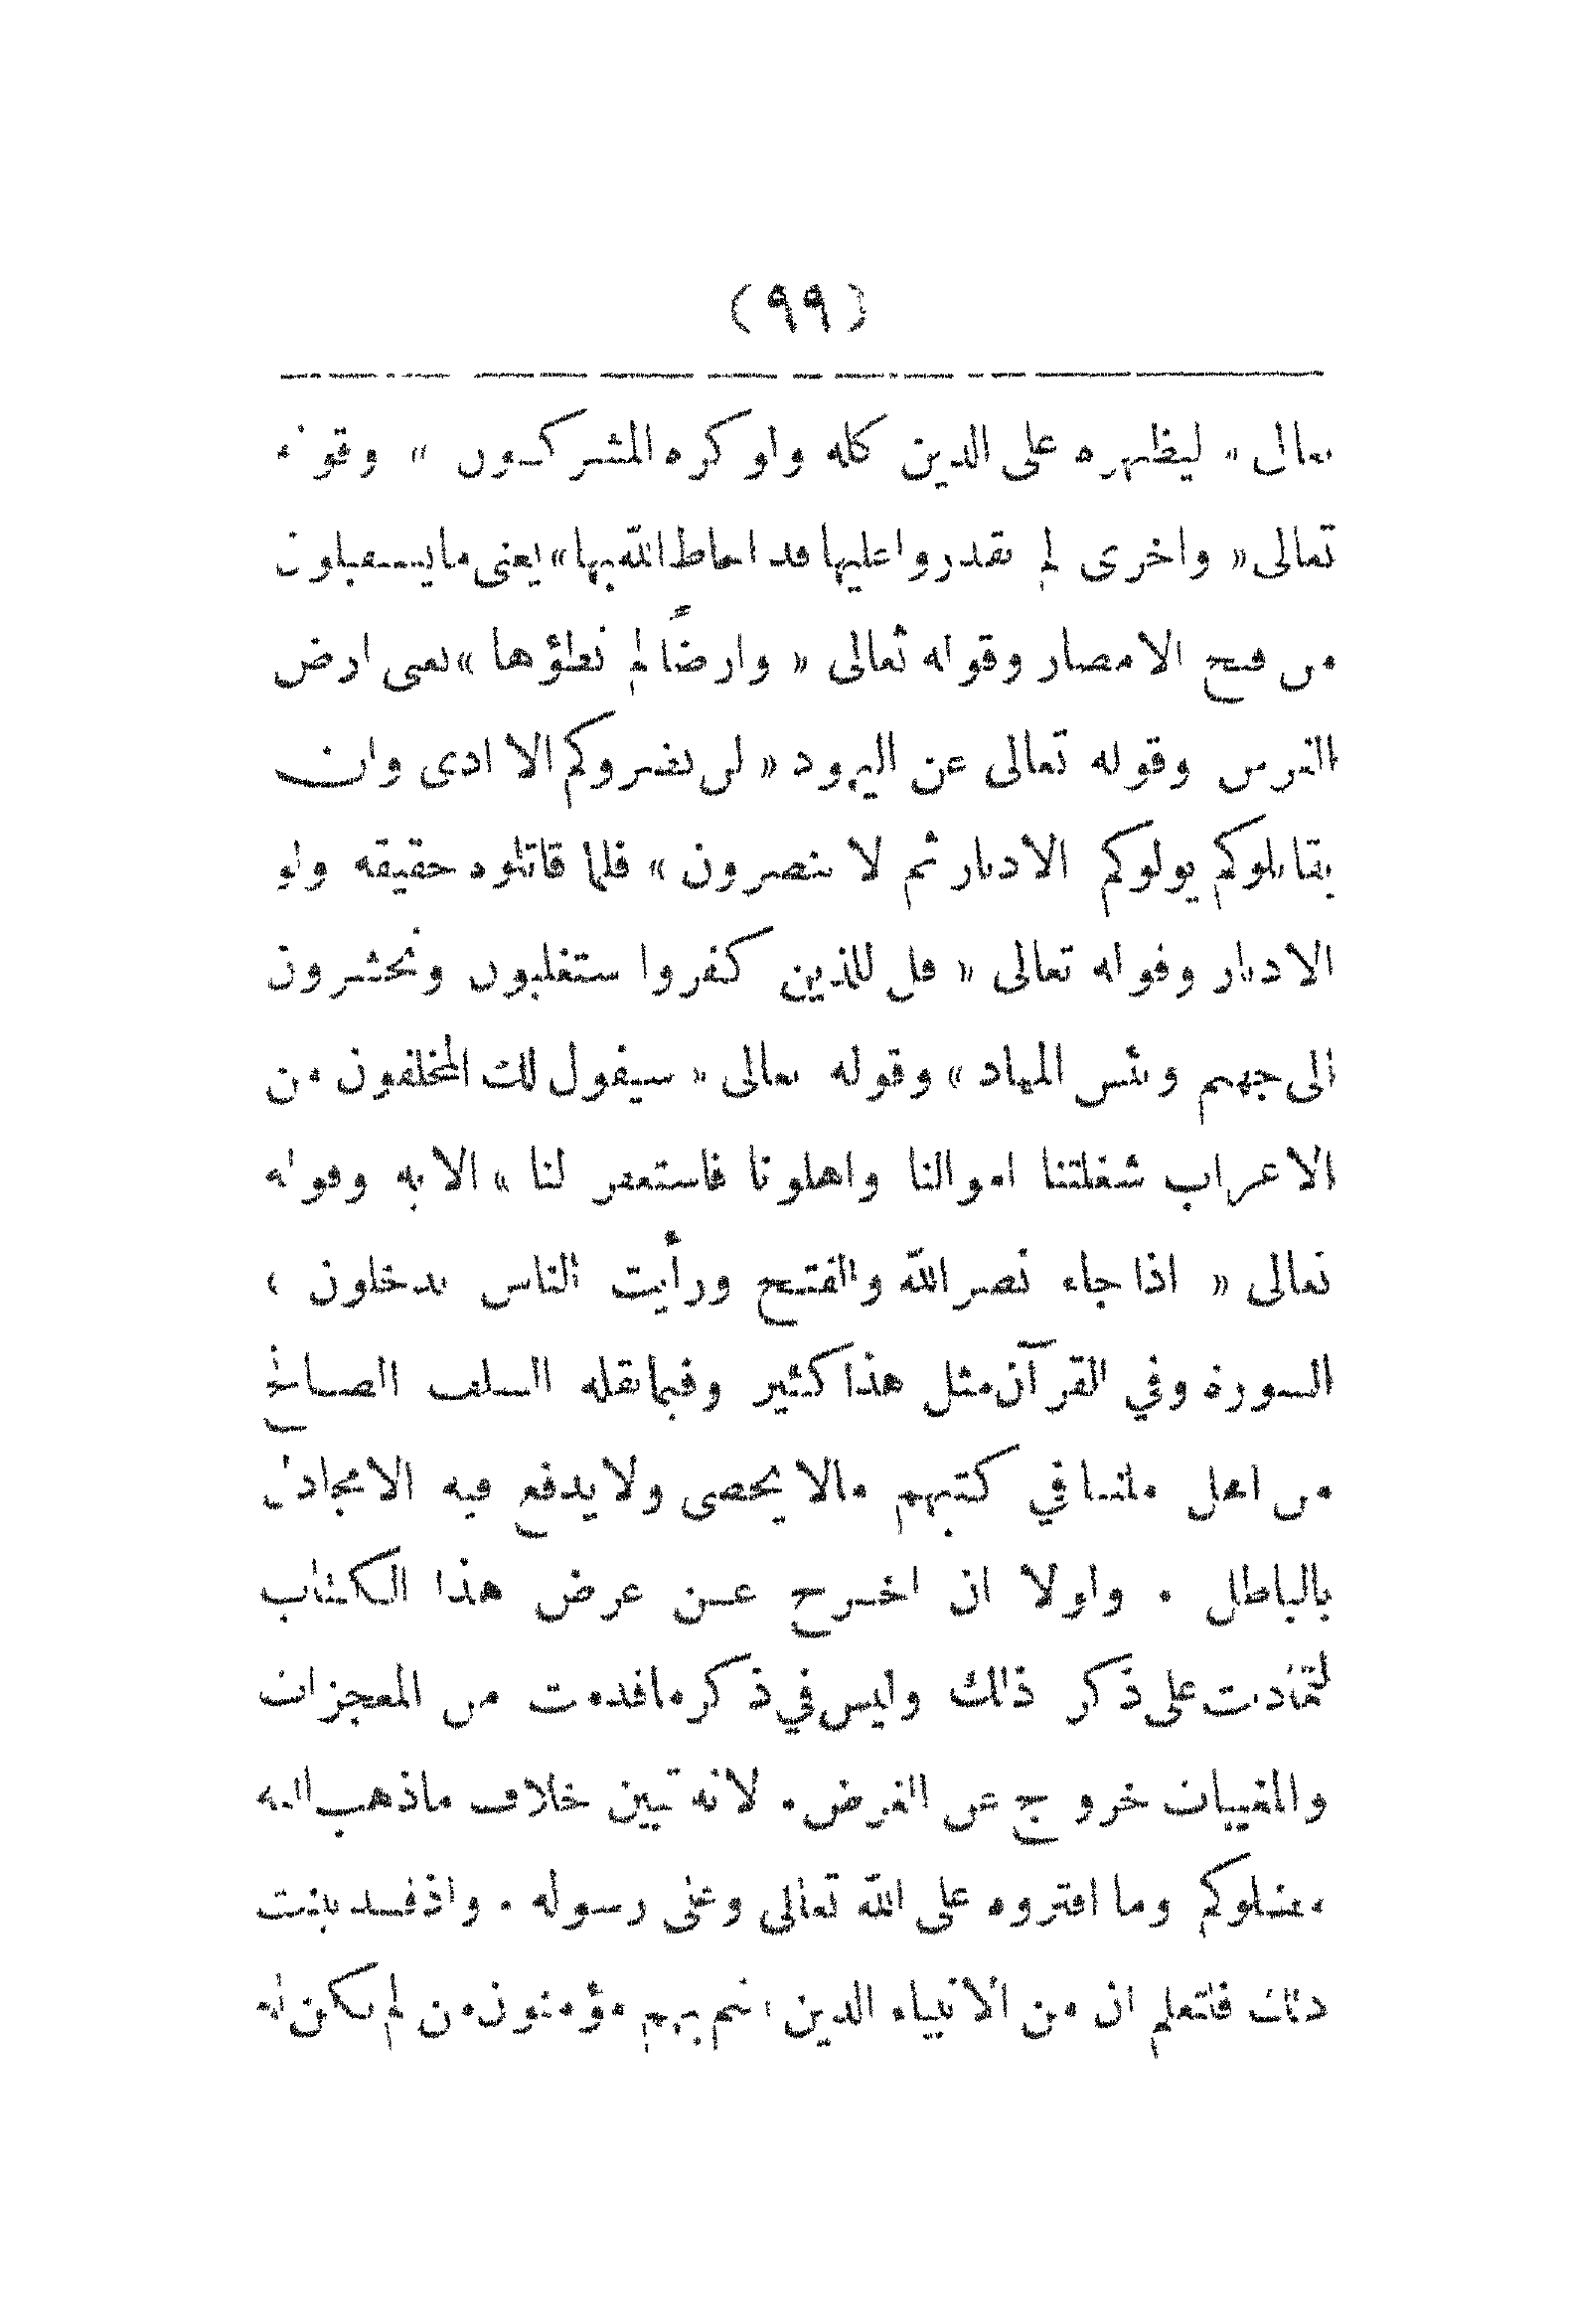 (٩٩)
تعالى « ليظهره على الدين كله ولو كره المشركون » وقوله
تعالى « واخرى لم تقدروا عليها قد احاط الله بها » يعنى ما يستقبلون
من فتح الامصار وقوله تعالى « وارضًا لم تطؤها » يعنى ارض
الفرس وقوله تعالى عن اليهود « لن يضروكم الا اذى وان
يقاتلوكم يولوكم الادبار ثم لا ينصرون » فلما قاتلوه حقيقه ولو
الادبار وقوله تعالى « قل للذين كفروا ستغلبون وتحشرون
الى جهنم وبئس المهاد » وقوله تعالى « سيقول لك المخلفون من
الاعراب شغلتنا اموالنا واهلونا فاستغفر لنا » الايه وقوله
تعالى « اذا جاء نصر الله والفتح ورأيت الناس يدخلون ،
السورة وفي القرآن مثل هذا كثير وفيما نقله السلف الصالح
من اهل ملتنا في كتبهم مالا يحصى ولا يدفع فيه الا مجادل
بالباطل . ولولا ان اخرج عن عرض هذا الكتاب
لتماديت على ذكر ذلك وليس في ذكر ما قدمت من المعجزات
والمغيبات خروج عن الغرض . لانه تبين خلاف ما ذهب اليه
معضلوكم وما افتروه على الله تعالى وعلى رسوله . واذ قد بينت
ذلك فلتعلم ان من الانبياء الذين انتم بهم مؤمنون من لم تكن له